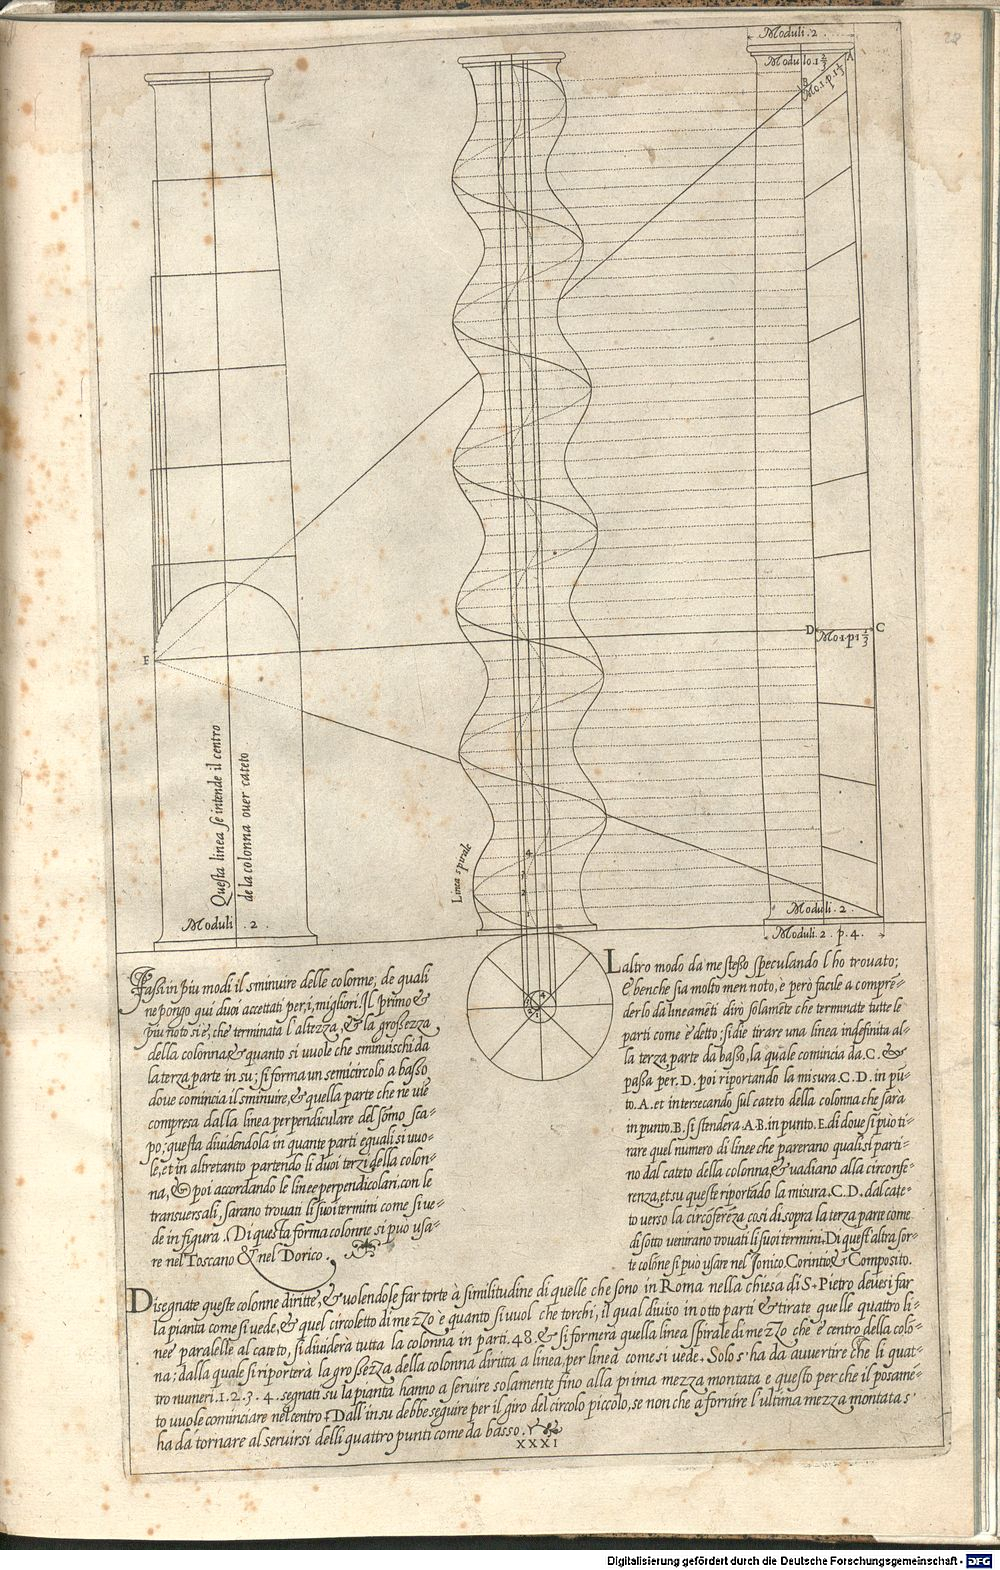 28
Moduli . 2 .
Modulo . 1 2/3
A
B
Mo . 1 . p . 1 1/3
D
Mo 1 p 1 1/3
C
E
Questa linea se intende il centro
de la colonna ouer cateto
Linea spirale
4
3
2
1
Moduli . 2 .
Moduli . 2 .
Moduli . 2 . p . 4 .
Fassi in piu modi il sminuire delle colonne, de quali
ne pongo qui duoi accettati per, i, migliori. Il primo &
piu noto si è, che terminata l'altezza, & la grossezza
della colonna & quanto si vuole che sminuischi da
la terza parte in su; si forma un semicircolo a basso
doue comincia il sminuire, & quella parte che ne uiẽ
compresa dalla linea perpendiculare del sõmo sca-
po; questa diuidendola in quante parti eguali si uuo-
le, et in altretanto partendo li duoi terzi della colon-
na, & poi accordando le linee perpendicolari con le
transuersali, sarano trouati li suoi termini come si ue-
de in figura. Di questa forma colonne si può usa-
re nel Toscano & nel Dorico.
Laltro modo da me stesso speculando l ho trouato;
E benche sia molto men noto, è però facile a comprẽ-
derlo da lineamẽti dirò solamẽte che terminate tutte le
parti come è detto; si die tirare una linea indefinita al-
la terza parte da basso, la quale comincia da . C . &
passa per . D . poi riportando la misura . C . D . in pũ-
to . A . et intersecando sul cateto della colonna che sarà
in punto . B . si stenderà . A . B . in punto . E . di doue si può ti-
rare quel numero di linee che pareranno quali si parti-
no dal cateto della colonna, & uadiano alla circonfe-
renza, et su queste riportado la misura . C . D . dal cate-
to uerso la circõferẽza così di sopra la terza parte come
di sotto uenirano trouati li suoi termini. Di quest'altra sor-
te colõne si può usare nel Jonico. Corintio & Composito.
Disegnate queste colonne diritte, & uolendole far torte à similitudine di quelle che sono in Roma nella chiesa di S. Pietro deuesi far
la pianta come si uede, & quel circoletto di mezo è quanto si uuol che torchi, il qual diuiso in otto parti & tirate quelle quattro li-
nee paralelle al cateto, si diuiderà tutta la colonna in parti . 48 . & si formerà quella linea spirale di mezo che è centro della colo-
na; dalla quale si riporterà la grossezza della colonna diritta a linea per linea come si uede . Solo s' ha da auuertire che li quat-
tro numeri . 1 . 2 . 3 . 4 . segnati su la pianta hanno a seruire solamente fino alla prima mezza montata e questo per che il posamẽ-
to vuole cominciare nel centro. Dall'in su debbe seguire per il giro del circolo piccolo, se non che a fornire l'ultima mezza montata s'
ha da tornare al seruirsi delli quattro punti come da basso .
XXXI
Digitalisierung gefördert durch die Deutsche Forschungsgemeinschaft - DFG